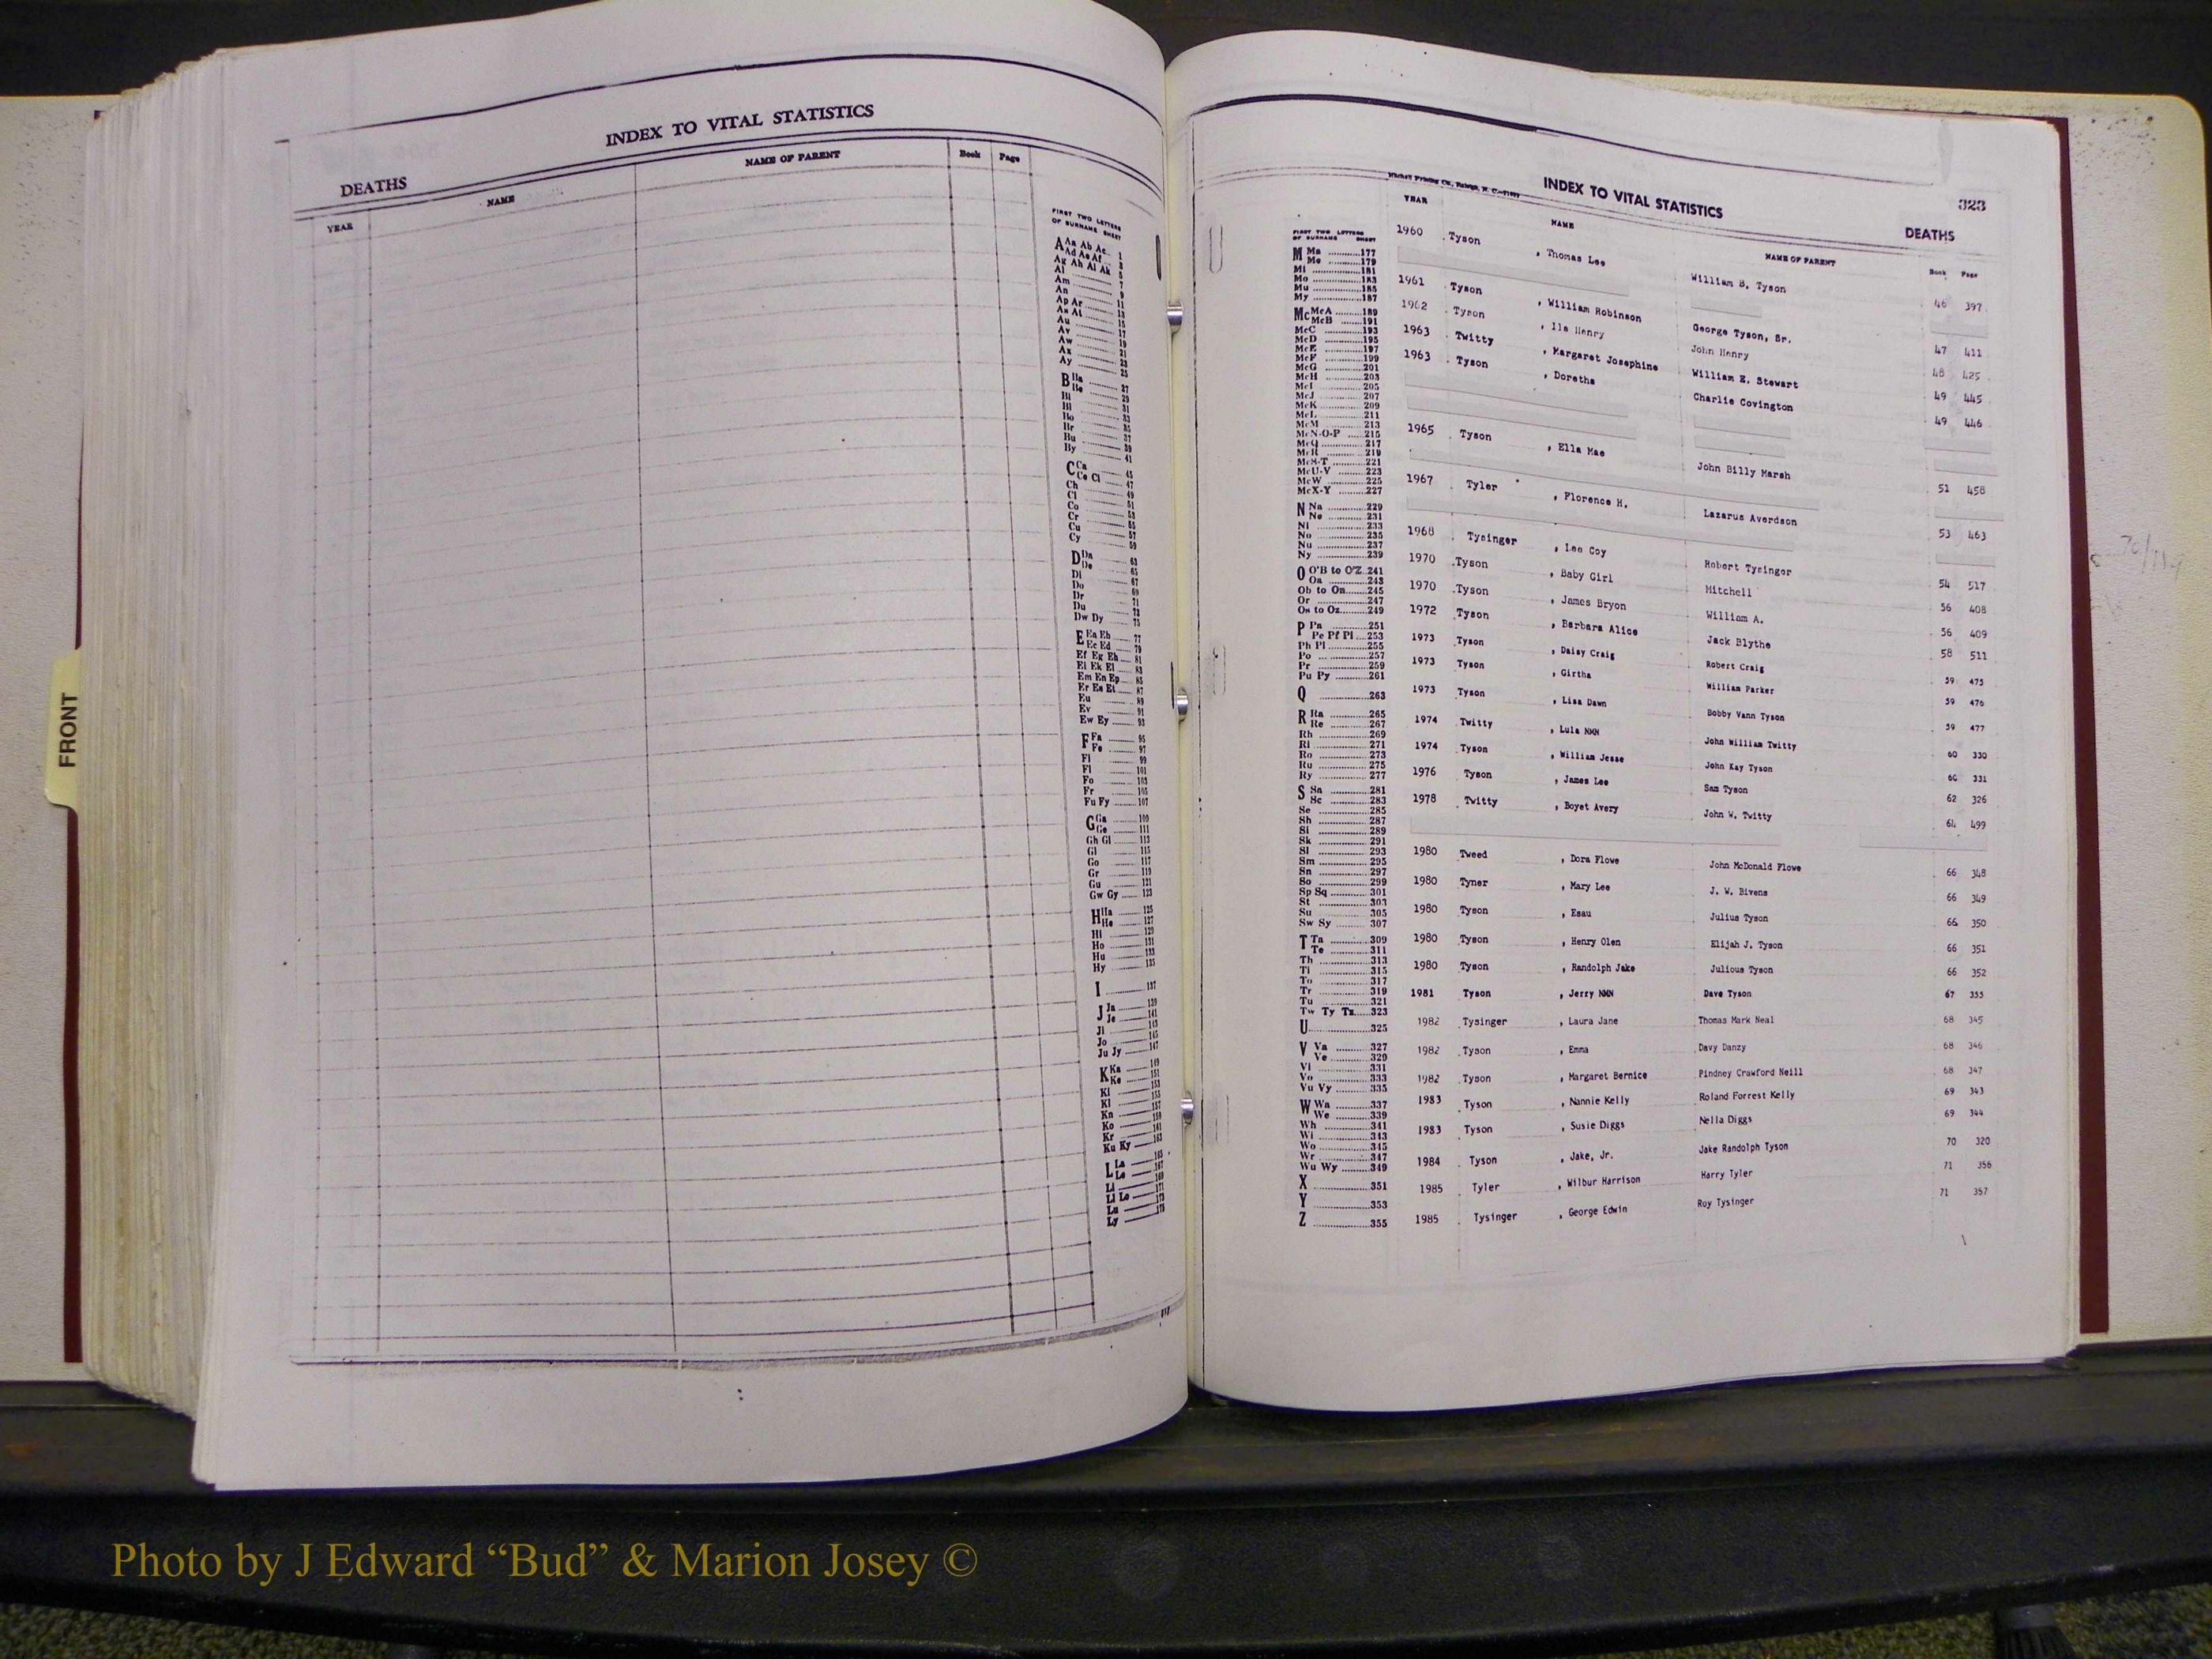 INDEX TO VITAL STATISTICS
DEATHS
YEAR NAME NAME OF PARENT Book Page
FIRST TWO LETTERS
OF SURNAME SHEET
A Aa Ab Ac 1
Am 9
An
Ap Ar 11
Au 15
Av 17
Aw 19
Ax 21
Ay 23
B Ba 27
Be 29
Bi 31
Bo
Br 35
Bu 37
By
C Ca 45
Ce Ci 47
Ch 49
Cl 51
Co 53
Cr 55
Cu 57
Cy 59
D Da 63
De 65
Di 67
Do 69
Dr 71
Du 73
Dw Dy 75
E Ea Eb 77
Ec Ed 79
Ef Eg Eh 81
Ei Ek El 83
Em En Ep 85
Er Es Et 87
Eu 89
Ev 91
Ew Ey 93
F Fa 95
Fe 97
Fi 99
Fl 101
Fo 103
Fr 105
Fu Fy 107
G Ga 109
Ge 111
Gh Gi 113
Gl 115
Go 117
Gr 119
Gu 121
Gw Gy 123
H Ha 125
He 127
Hi 129
Ho 131
Hu 133
Hy 135
I 137
J Ja 139
Je 141
Ji 143
Jo 145
Ju Jy 147
K Ka 149
Ke 151
Ki 153
Kl 155
Kn 157
Ko 159
Kr 161
Ku Ky 163
L La 165
Le 167
Li 169
Ll Lo 171
Lu
Ly
FRONT
INDEX TO VITAL STATISTICS 323
DEATHS
YEAR NAME NAME OF PARENT Book Page
FIRST TWO LETTERS
OF SURNAME SHEET
M Ma 177
Me 179
Mi 181
Mo 183
Mu 185
My 187
Mc McA 189
McB 191
McC 193
McD 195
McE 197
McF 199
McG 201
McH 203
McI 205
McJ 207
McK 209
McL 211
McM 213
McN-O-P 215
McQ 217
McR 219
McS-T 221
McU-V 223
McW 225
McX-Y 227
N Na 229
Ne 231
Ni 233
No 235
Nu 237
Ny 239
O O'B to O'Z 241
Oa 243
Ob to On 245
Or 247
Os to Oz 249
P Pa 251
Pe Pf Pi 253
Ph Pl 255
Po 257
Pr 259
Pu Py 261
Q 263
R Ra 265
Re 267
Rh 269
Ri 271
Ro 273
Ru 275
Ry 277
S Sa 281
Sc 283
Se 285
Sh 287
Si 289
Sk 291
Sl 293
Sm 295
Sn 297
So 299
Sp Sq 301
St 303
Su 305
Sw Sy 307
T Ta 309
Te 311
Th 313
Ti 315
To 317
Tr 319
Tu 321
Tw Ty Tz 323
U 325
V Va 327
Ve 329
Vi 331
Vo 333
Vu Vy 335
W Wa 337
We 339
Wh 341
Wi 343
Wo 345
Wr 347
Wu Wy 349
X 351
Y 353
Z 355
1960 Tyson , Thomas Lee William B. Tyson 46 397
1961 Tyson , William Robinson George Tyson, Sr. 47 411
1962 Tyson , Ila Henry John Henry 48 425
1963 Twitty , Margaret Josephine William E. Stewart 49 445
1963 Tyson , Doretha Charlie Covington 49 446
1965 Tyson , Ella Mae John Billy Marsh 51 458
1967 Tyler , Florence H. Lazarus Averdson 53 463
1968 Tysinger , Lee Coy Robert Tysinger 54 517
1970 Tyson , Baby Girl Mitchell 56 408
1970 Tyson , James Bryon William A. 56 409
1972 Tyson , Barbara Alice Jack Blythe 58 511
1973 Tyson , Daisy Craig Robert Craig 59 475
1973 Tyson , Girtha William Parker 59 476
1973 Tyson , Lisa Dawn Bobby Vann Tyson 59 477
1974 Twitty , Lula NMN John William Twitty 60 330
1974 Tyson , William Jesse John Kay Tyson 60 331
1976 Tyson , James Lee Sam Tyson 62 326
1978 Twitty , Boyet Avery John W. Twitty 64 499
1980 Tweed , Dora Flowe John McDonald Flowe 66 348
1980 Tyner , Mary Lee J. W. Bivens 66 349
1980 Tyson , Esau Julius Tyson 66 350
1980 Tyson , Henry Olen Elijah J. Tyson 66 351
1980 Tyson , Randolph Jake Julious Tyson 66 352
1981 Tyson , Jerry NMN Dave Tyson 67 355
1982 Tysinger , Laura Jane Thomas Mark Neal 68 345
1982 Tyson , Emma Davy Danzy 68 346
1982 Tyson , Margaret Bernice Pindney Crawford Neill 68 347
1983 Tyson , Nannie Kelly Roland Forrest Kelly 69 343
1983 Tyson , Susie Diggs Nella Diggs 69 344
1984 Tyson , Jake, Jr. Jake Randolph Tyson 70 320
1985 Tyler , Wilbur Harrison Harry Tyler 71 356
1985 Tysinger , George Edwin Roy Tysinger 71 357
Photo by J Edward “Bud” & Marion Josey ©